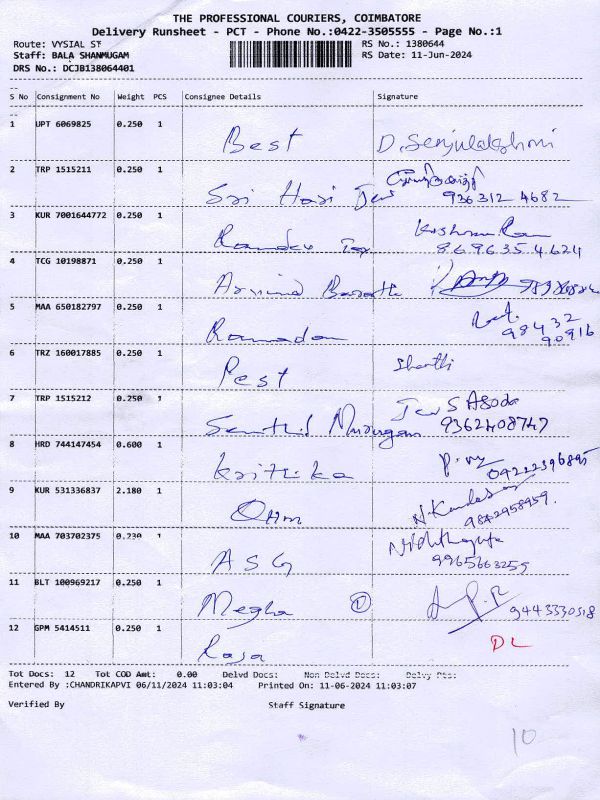 THE PROFESSIONAL COURIERS, COIMBATORE
Delivery Runsheet - PCT - Phone No.:0422-3505555 - Page No.:1
Route: VYSIAL ST
RS No.: 1380644
Staff: BALA SHANMUGAM
RS Date: 11-Jun-2024
DRS No.: DCJB138064401
S No Consignment No Weight PCS Consignee Details Signature
1 UPT 6069825 0.250 1
Best
2 TRP 1515211 0.250 1
Sri Hari Jew 936312 4682
3 KUR 7001644772 0.250 1
Ramdev Tex 869635 4624
4 TCG 10198871 0.250 1
Arvind
5 MAA 650182797 0.250 1
Ramadan 98432
90916
6 TRZ 160017885 0.250 1
Pest
7 TRP 1515212 0.250 1
Senthil Murugan Jew S Asoda
9362408747
8 HRD 744147454 0.600 1
Krithika 04222396895
9 KUR 531336837 2.180 1
Ohm 9842958959
10 MAA 703702375 0.230 1
ASG 9965663255
11 BLT 100969217 0.250 1
Megha 9443330518
12 GPM 5414511 0.250 1
Rasa DL
Tot Docs: 12 Tot COD Amt: 0.00 Delvd Docs: Non Delvd Docs: Delvy Pts:
Entered By :CHANDRIKAPVI 06/11/2024 11:03:04 Printed On: 11-06-2024 11:03:07
Verified By Staff Signature
10